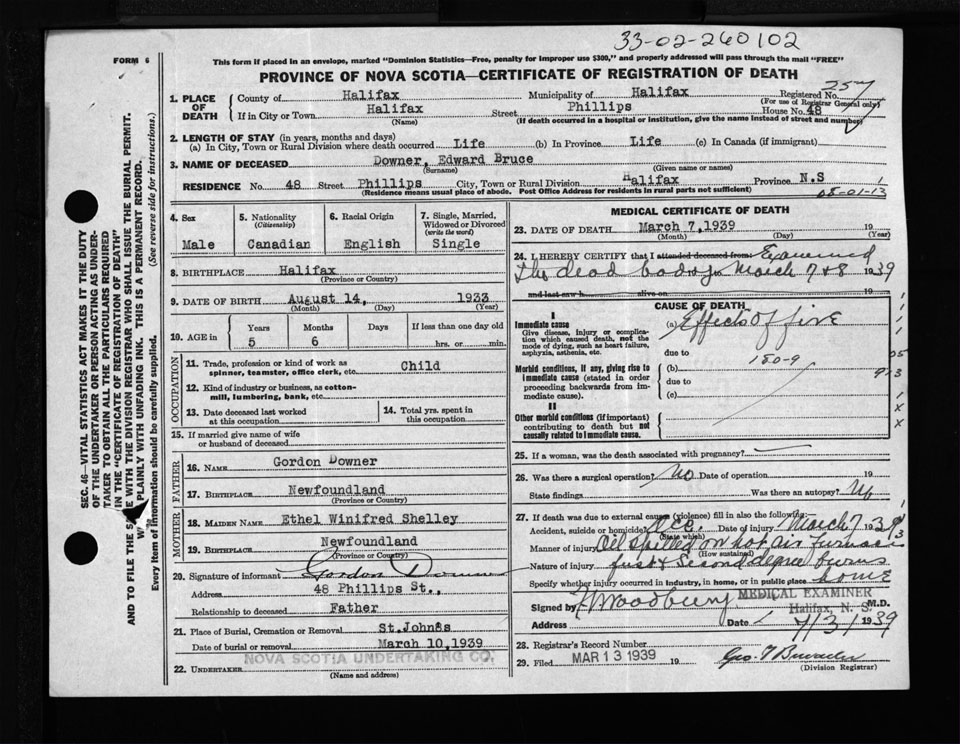 33-02-260102
FORM 6
This form if placed in an envelope, marked "Dominion Statistics—Free, penalty for improper use $300," and properly addressed will pass through the mail "FREE"
PROVINCE OF NOVA SCOTIA—CERTIFICATE OF REGISTRATION OF DEATH
257
1. PLACE OF DEATH { County of Halifax Municipality of Halifax Registered No.
(For use of Registrar General only)
If in City or Town Halifax Street Phillips House No. 48
(Name) (If death occurred in a hospital or institution, give the name instead of street and number)
2. LENGTH OF STAY (in years, months and days)
(a) In City, Town or Rural Division where death occurred Life (b) In Province Life (c) In Canada (if immigrant)
3. NAME OF DECEASED Downer, Edward Bruce
(Surname) (Given name or names)
RESIDENCE No. 48 Street Phillips City, Town or Rural Division Halifax Province N.S
(Residence means usual place of abode. Post Office Address for residents in rural parts not sufficient)
08-01-13
4. Sex 5. Nationality (Citizenship) 6. Racial Origin 7. Single, Married, Widowed or Divorced (write the word)
Male Canadian English Single
8. BIRTHPLACE Halifax
(Province or Country)
9. DATE OF BIRTH August 14, 1933
(Month) (Day) (Year)
10. AGE in { Years Months Days If less than one day old
5 6 hrs. or min.
OCCUPATION
11. Trade, profession or kind of work as spinner, teamster, office clerk, etc. Child
12. Kind of industry or business, as cotton-mill, lumbering, bank, etc.
13. Date deceased last worked at this occupation 14. Total yrs. spent in this occupation
15. If married give name of wife or husband of deceased
FATHER
16. NAME Gordon Downer
17. BIRTHPLACE Newfoundland
(Province or Country)
MOTHER
18. MAIDEN NAME Ethel Winifred Shelley
19. BIRTHPLACE Newfoundland
(Province or Country)
20. Signature of informant Gordon Downer
Address 48 Phillips St.,
Relationship to deceased Father
21. Place of Burial, Cremation or Removal St. Johns
Date of burial or removal March 10,1939
22. UNDERTAKER NOVA SCOTIA UNDERTAKING CO.
(Name and address)
MEDICAL CERTIFICATE OF DEATH
23. DATE OF DEATH March 7,1939 19
(Month) (Day) (Year)
24. I HEREBY CERTIFY that I attended deceased from: Examined
the dead body March 7 & 8 1939
and last saw h alive on
CAUSE OF DEATH
I
Immediate cause (a) Effects of fire
Give disease, injury or complication which caused death, not the mode of dying, such as heart failure, asphyxia, asthenia, etc.
due to
(b) 180-9
Morbid conditions, if any, giving rise to immediate cause (stated in order proceeding backwards from immediate cause).
due to
(c)
II
Other morbid conditions (if important) contributing to death but not causally related to immediate cause.
25. If a woman, was the death associated with pregnancy?
26. Was there a surgical operation? No Date of operation 19
State findings Was there an autopsy? No
27. If death was due to external causes (violence) fill in also the following:
Accident, suicide or homicide? Acc. Date of injury March 7 1939
(State which)
Manner of injury Oil spilled on hot air furnace
(How sustained)
Nature of injury first & second degree burns
Specify whether injury occurred in industry, in home, or in public place home
Signed by Woodbury MEDICAL EXAMINER M.D.
Halifax, N. S.
Address Date 1939
28. Registrar's Record Number
29. Filed MAR 13 1939 19
(Division Registrar)
SEC. 46—VITAL STATISTICS ACT MAKES IT THE DUTY
OF THE UNDERTAKER OR PERSON ACTING AS UNDER-
TAKER TO OBTAIN ALL THE PARTICULARS REQUIRED
IN THE "CERTIFICATE OF REGISTRATION OF DEATH"
AND TO FILE THE SAME WITH THE DIVISION REGISTRAR WHO SHALL ISSUE THE BURIAL PERMIT.
PLAINLY WITH UNFADING INK. THIS IS A PERMANENT RECORD.
Every item of information should be carefully supplied. (See reverse side for instructions.)